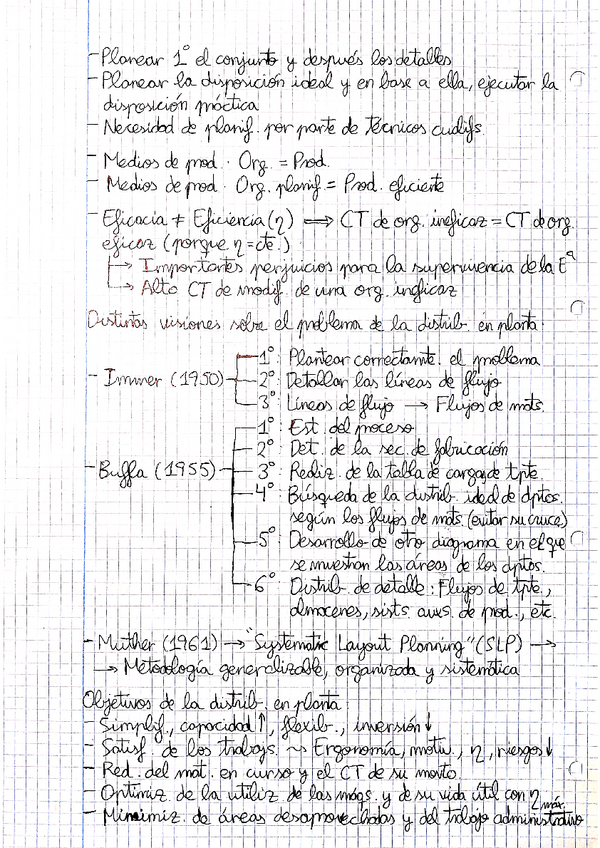 - Planear 1º el conjunto y después los detalles
- Planear la disposición ideal y en base a ella, ejecutar la
disposición práctica
- Necesidad de planif. por parte de técnicos cualifs.
- Medios de prod. · Org. = Prod.
- Medios de prod. · Org. planif = Prod. eficiente
- Eficacia ≠ Eficiencia (η) ⟹ CT de org. ineficaz = CT de org.
eficaz (porque η = cte.)
→ Importantes perjuicios para la supervivencia de la Eª
→ Alto CT de modif. de una org. ineficaz
Distintas visiones sobre el problema de la distrib. en planta:
- Immer (1950)
1º: Plantear correctamte. el problema
2º: Detallar las líneas de flujo
3º: Líneas de flujo → Flujos de mats.
- Buffa (1955)
1º: Est. del proceso
2º: Det. de la sec. de fabricación
3º: Realiz. de la tabla de carga de tpte.
4º: Búsqueda de la distrib. ideal de dptos.
según los flujos de mats. (evitar su cruce)
5º: Desarrollo de otro diagrama en el que
se muestran las áreas de los dptos.
6º: Distrib. de detalle: Flujos de tpte.,
almacenes, sists. auxs. de prod., etc.
- Muther (1961) → "Systematic Layout Planning" (SLP) →
→ Metodología generalizable, organizada y sistemática
Objetivos de la distrib. en planta:
- Simplif., capacidad ↑, flexib., inversión ↓
- Satisf. de los trabajs. ~> Ergonomía, motiv., η, riesgos ↓
- Red. del mat. en curso y el CT de su manto.
- Optimiz. de la utiliz. de las máqs. y de su vida útil con η máx.
- Minimiz. de áreas desaprovechadas y del trabajo administrativo